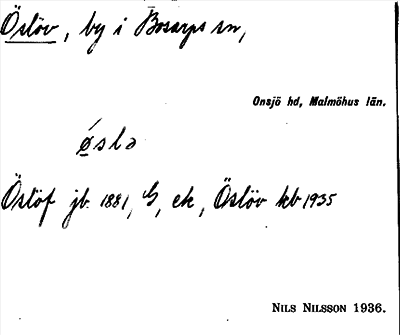 Öslöv, by i Bosarps sn,
Onsjö hd, Malmöhus län.
ǿslə
Öslöf jb. 1881, G, ek, Öslöv kb 1935
NILS NILSSON 1936.